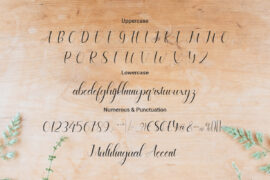 Uppercase
A B C D E F G H I J K L M N
O P Q R S T U V W X Y Z
Lowercase
abcdefghijklmnopqrstuvwxyz
Numerous & Punctuation
0123456789
Multilingual Accent